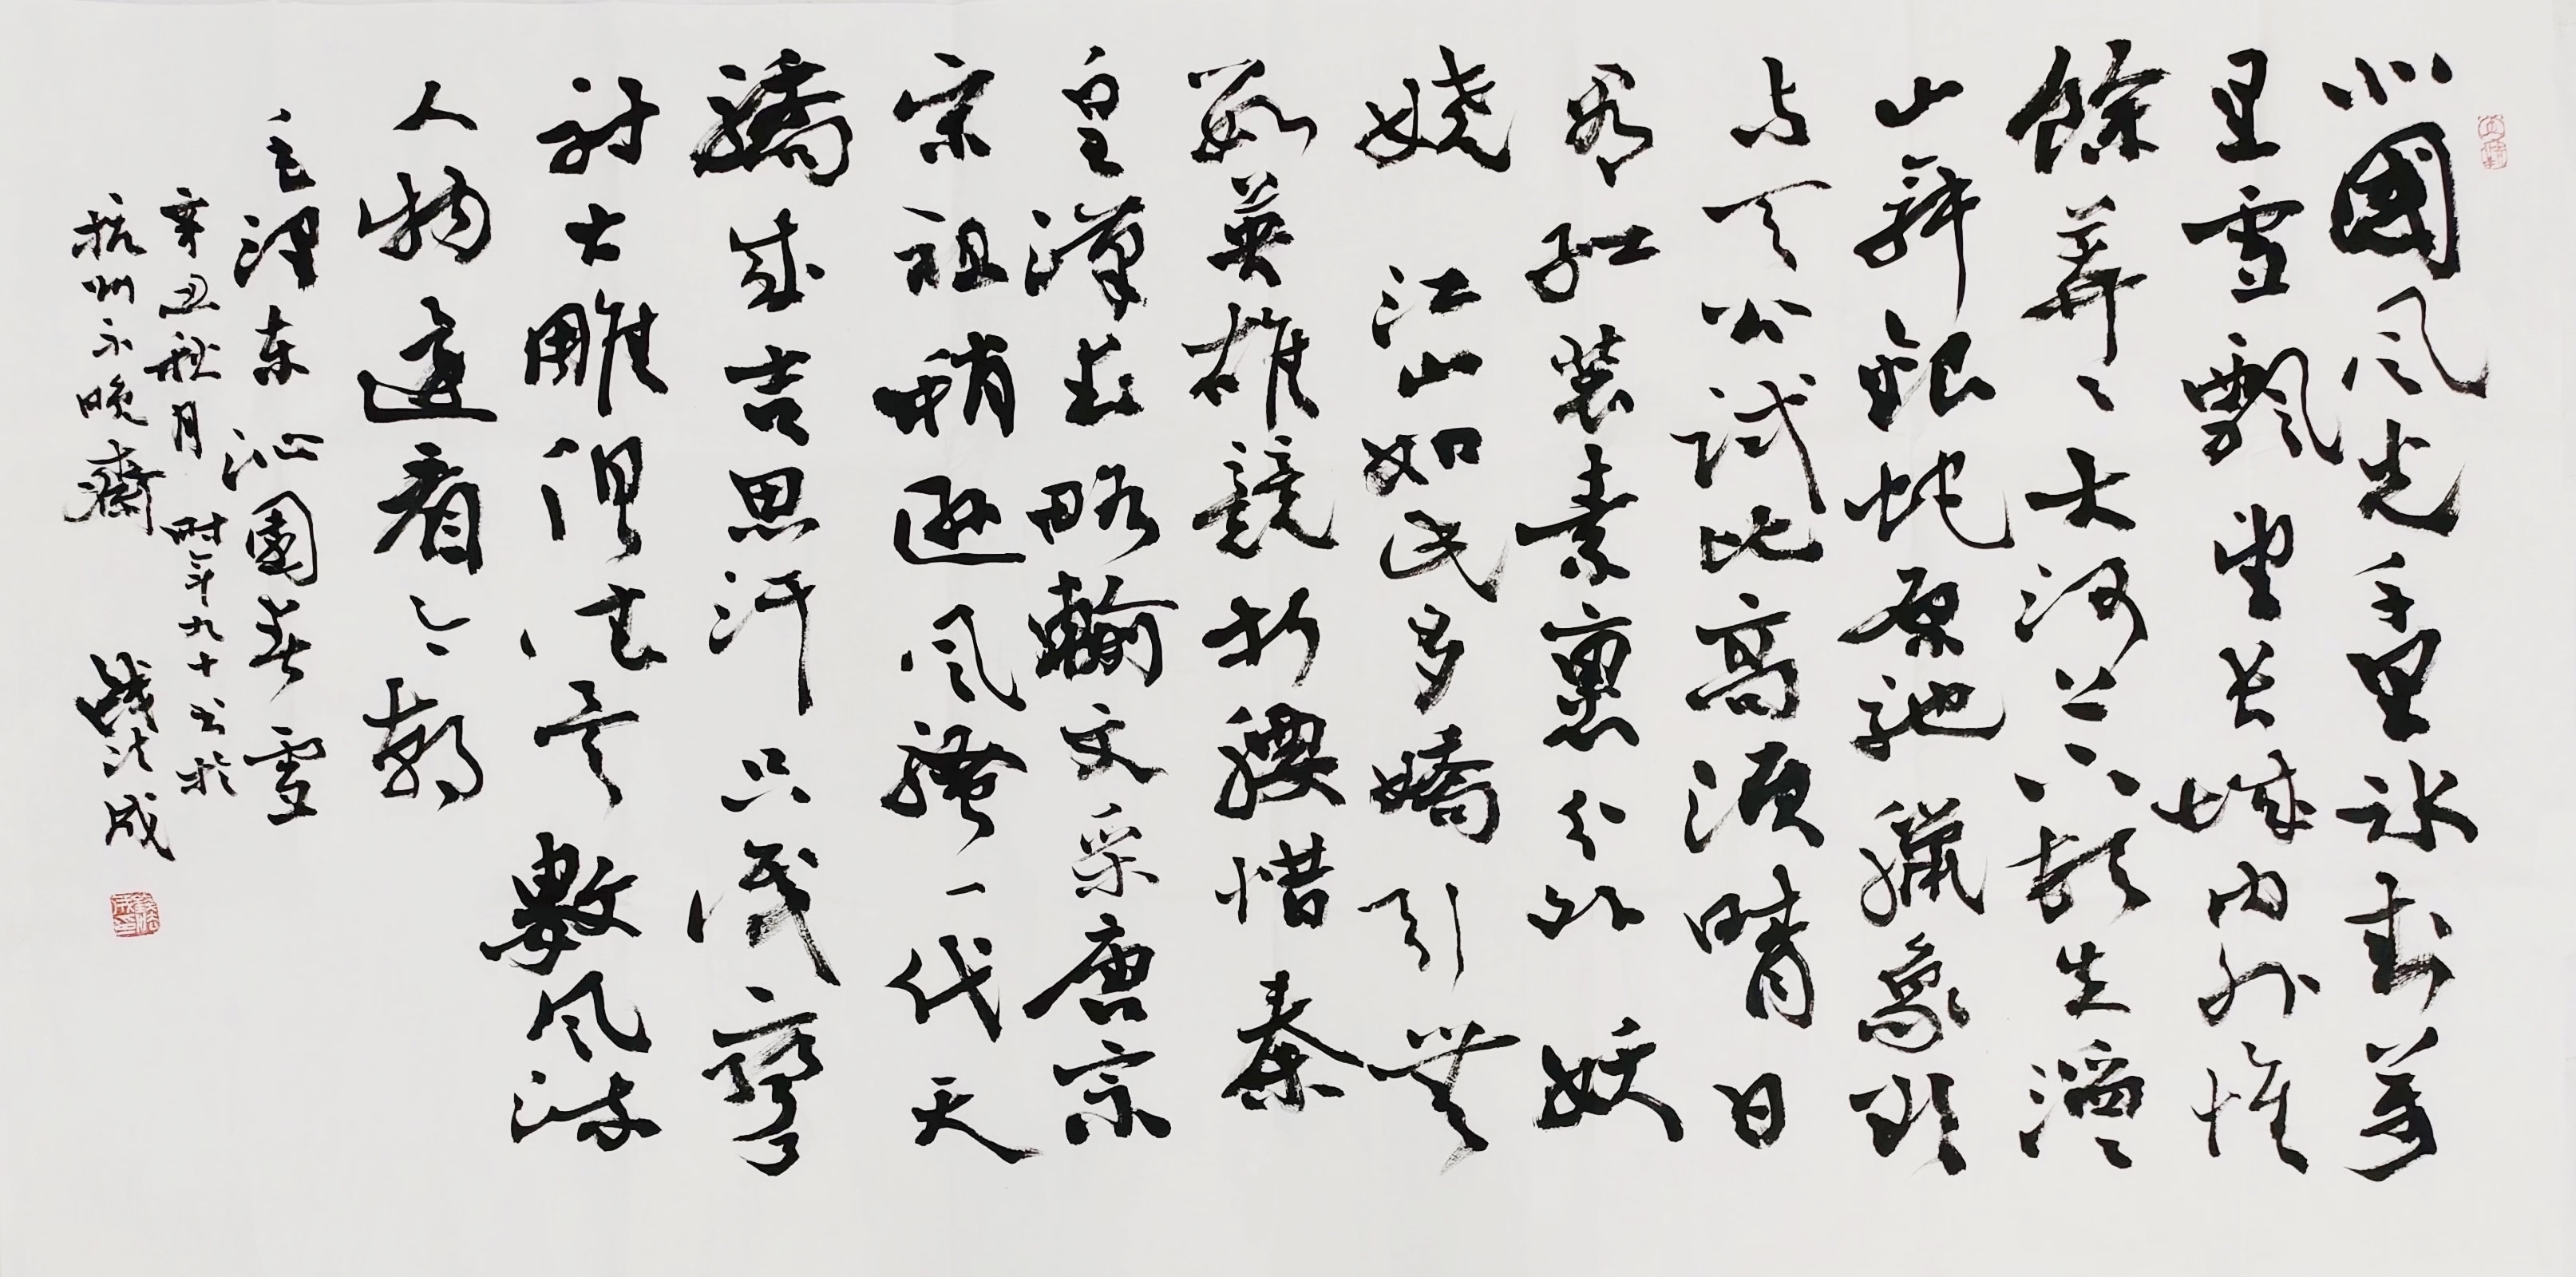 北國风光千里冰封万
里雪飘望长城内外惟
餘莽〻大河上下顿失滔〻
山舞銀蛇原驰臘象欲
与天公试比高须晴日
看红装素裹分外妖
娆江山如此多嬌引無
数英雄競折腰惜秦
皇漢武略輸文采唐宗
宋祖稍逊风骚一代天
驕成吉思汗只識彎
射大雕俱往矣數风流
人物還看今朝
毛泽东沁園春雪
辛丑秋月时年九十书於
杭州不晚齋 錢法成